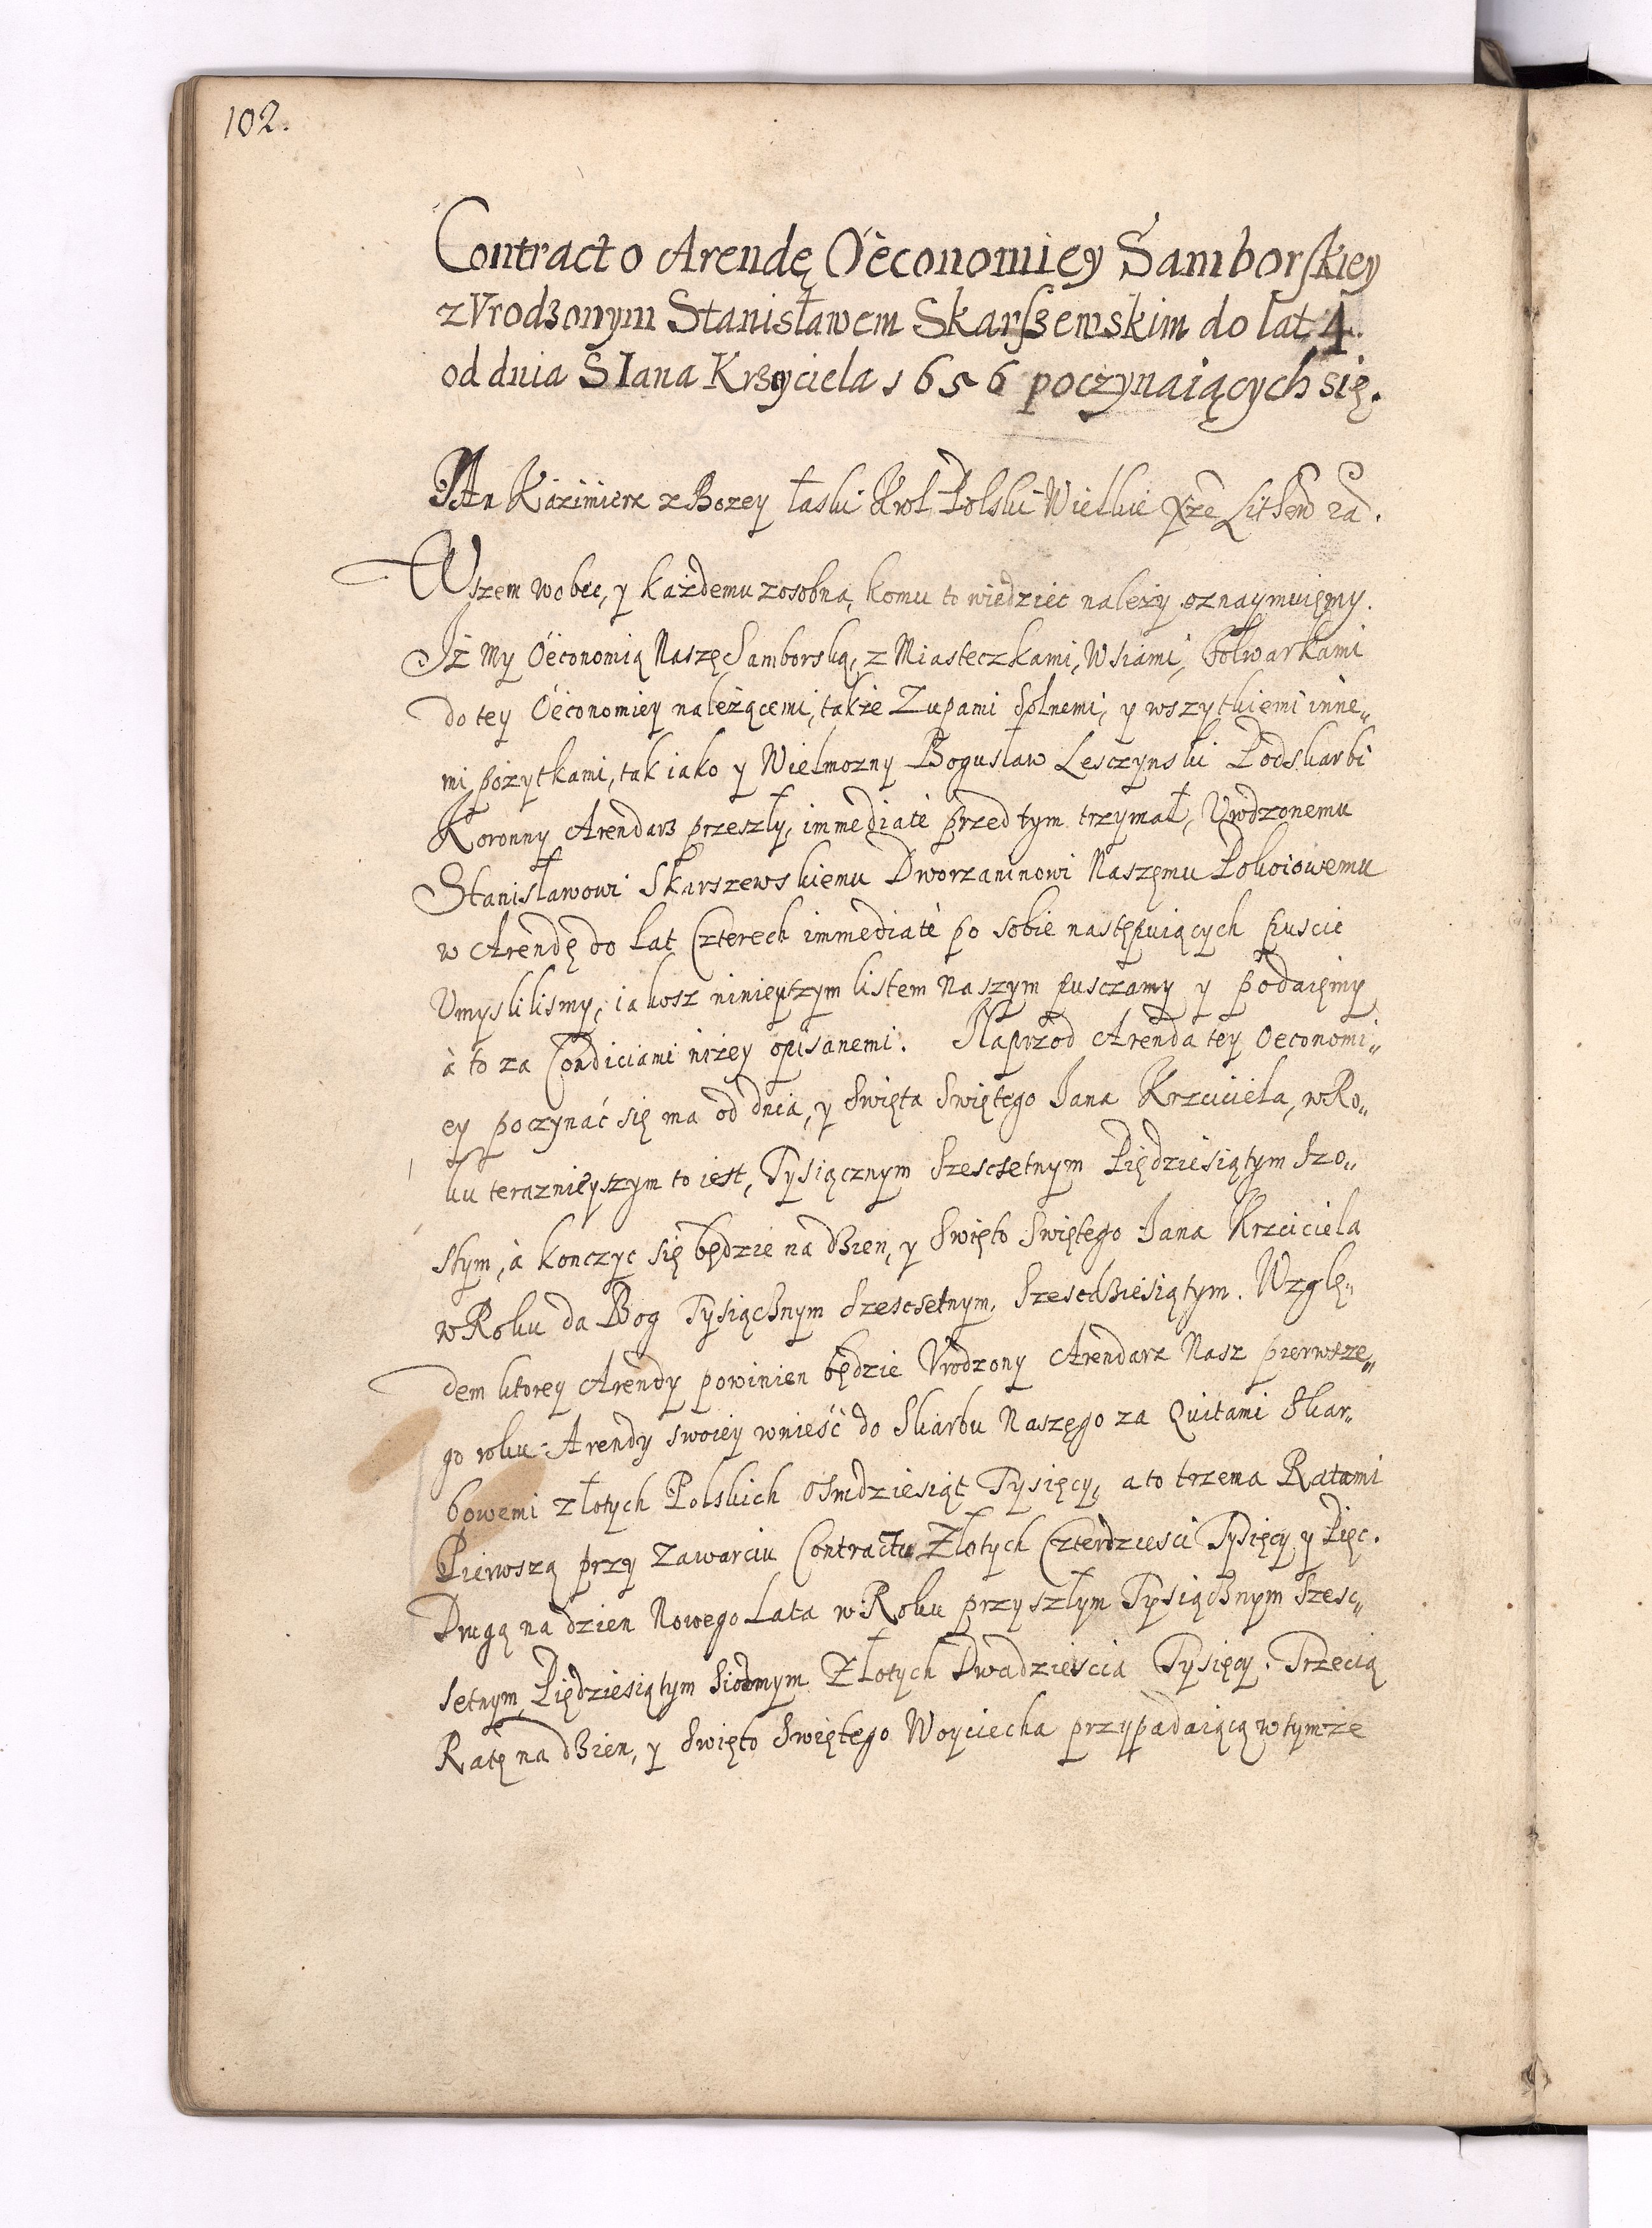 102.
Contract o Arendę Oéconomiey Samborskiey
z Vrodzonym Stanisławem Skarszewskim do lat 4.
od dnia S Iana Krzyciela 1656 poczynaiących się.
IAn Kazimierz z Bozey łaski Krol Polski Wielkie Xże Lith
Wszem wobec, y każdemu zosobna, komu to wiedziec należy oznaymuięmy.
Iż My Oéconomią Naszę Samborską, z Miasteczkami, Wsiami, Folwarkami
do tey Oéconomiey należącemi, także Zupami Solnemi, y wszytkiemi inne„
mi pożytkami, tak iako y Wielmozny Bogusław Lesczynski Podskarbi
Koronny Arendarz przeszły, immediatè przed tym trzymał, Vrodzonemu
Stanisławowi Skarszewskiemu Dworzaninowi Naszęmu Pokoiowemu
w Arendę do Lat Czterech immediatè po sobie następuiących puscic
Vmyslilismy, iakosz ninieyszym listem Naszym pusczamy y podaięmy
à to za Condiciami niżey opisanemi. Naprzod Arenda tey Oeconomi„
ey poczynać się ma od dnia, y Swięta Swiętego Iana Krzciciela, w Ro„
ku teraznieyszym to iest, Tysiącznym Szescsetnym Piędziesiątym Szo„
stym, à konczyc się będzie na dzien, y Swięto Swiętego Iana Krzciciela
w Roku da Bog Tysiącznym Szescsetnym, Szescdziesiątym. Wzglę„
dem ktorey Arendy powinien będzie Vrodzony Arendarz Nasz pierwsze„
go roku Arendy swoiey wnieść do Skarbu Naszęgo za Quitami Skar„
bowemi złotych Polskich Osmdziesiąt Tysięcy, a to trzema Ratami
Pierwszą przy Zawarciu Contractu Złotych Czterdziesci Tysięcy y Pięc.
Drugą na dzien Nowego Lata w Roku przyszłym Tysiącznym Szesc„
setnym Piędziesiątym Siodmym Złotych Dwadziescia Tysięcy. Trzecią
Ratę na dzien, y Swięto Swiętego Woyciecha przypadaiącą w tymże